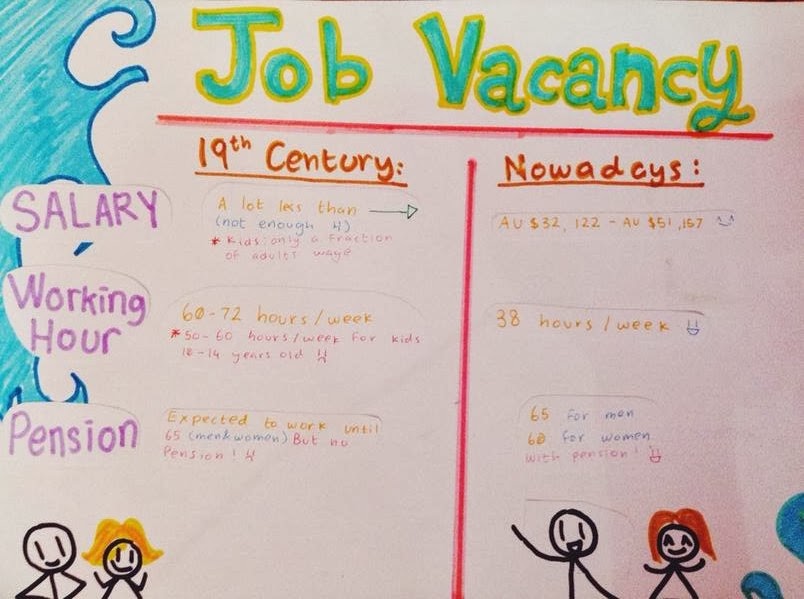 Job Vacancy
19th Century:
Nowadays:
SALARY
A lot less than
(not enough
* Kids: only a fraction
of adults wage
AU $32, 122 - AU $51,157
Working
Hour
60-72 hours/week
*50-60 hours/week for kids
10-14 years old
38 hours/week
Pension
Expected to work until
65 (men&women) But no
Pension!
65 for men
60 for women
with pension!